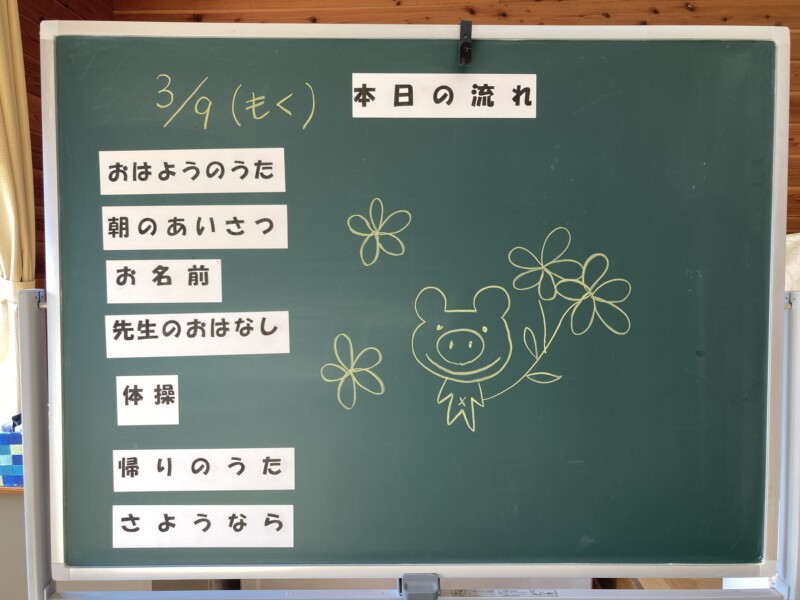 3/9(もく)
本日の流れ
おはようのうた
朝のあいさつ
お名前
先生のおはなし
体操
帰りのうた
さようなら